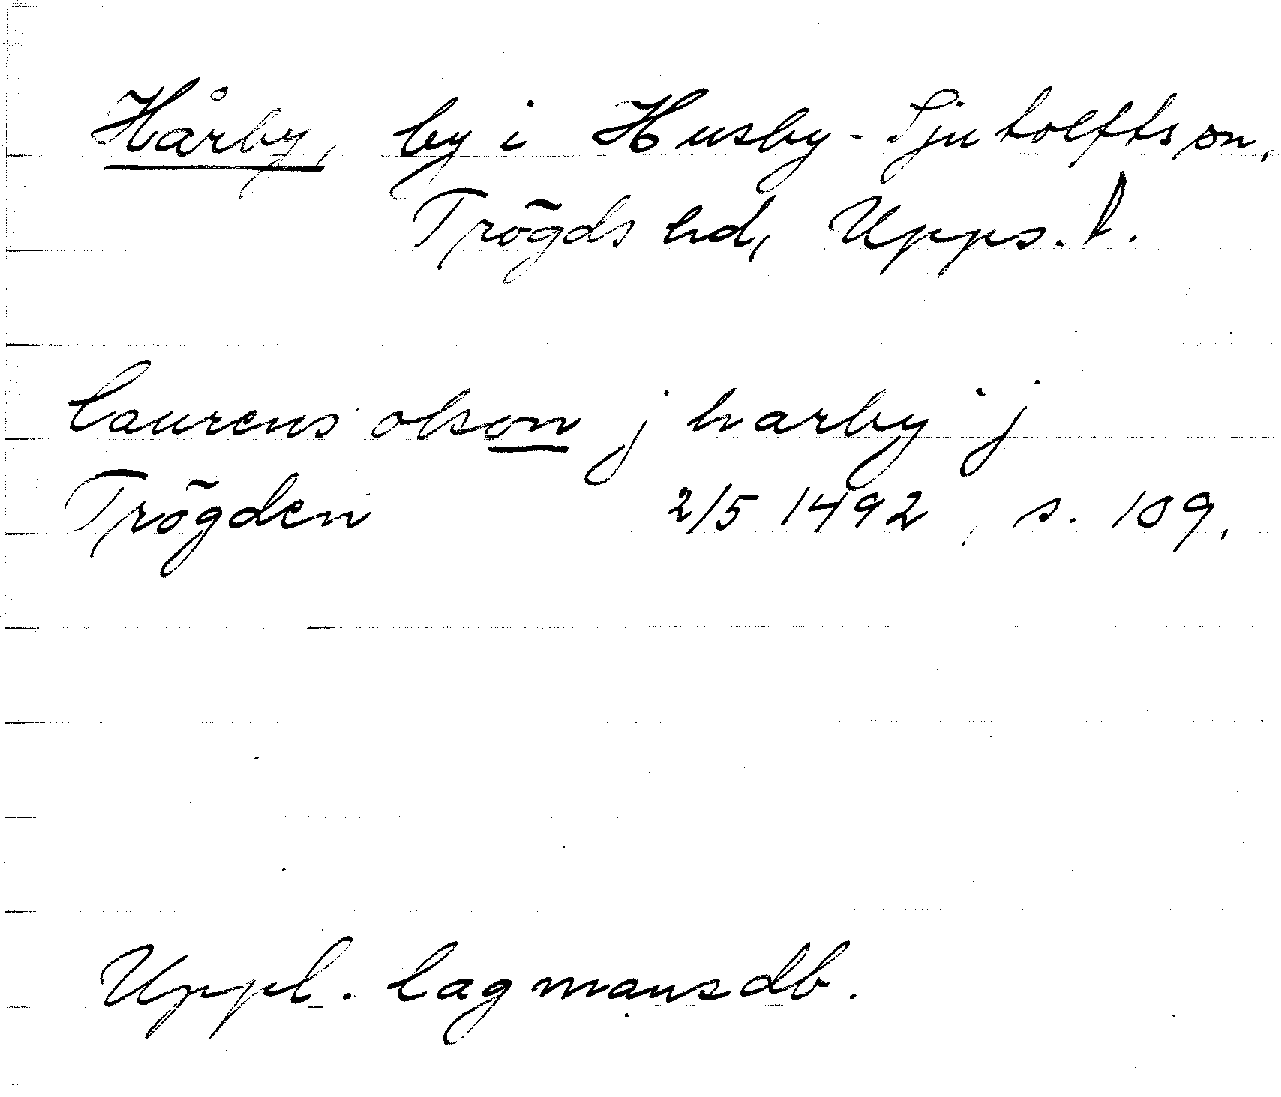 Hårby, by i Husby-Sjutolfts sn,
Trögds hd, Upps. l.
laurens olson j harby j
Trögden 2/5 1492, s. 109.
Uppl. lagmansdb.